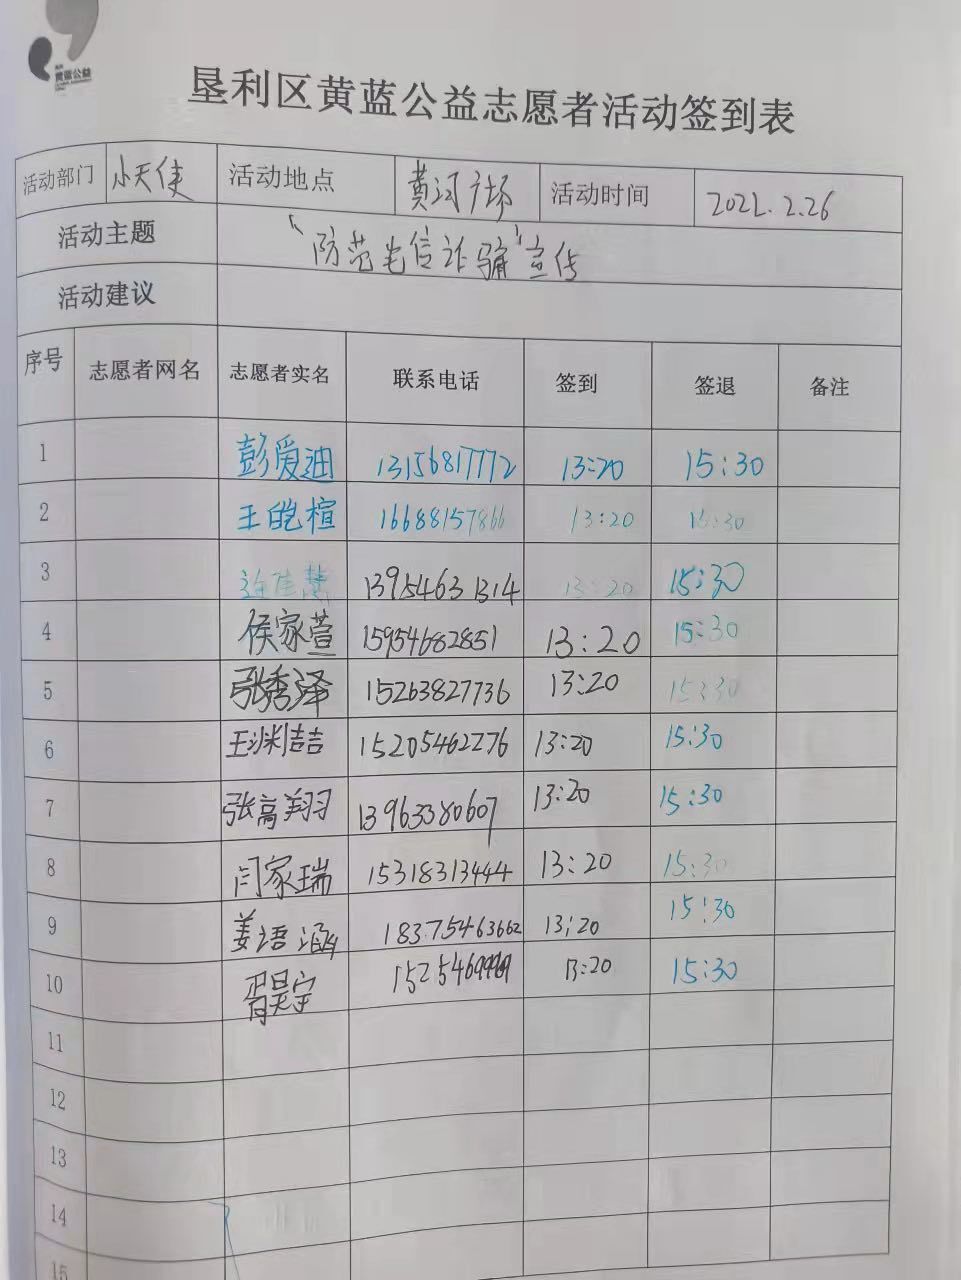 黄蓝公益
垦利区黄蓝公益志愿者活动签到表
活动部门 小天使 活动地点 黄河广场 活动时间 2022.2.26
活动主题 “防范电信诈骗”宣传
活动建议
序号 志愿者网名 志愿者实名 联系电话 签到 签退 备注
1 彭爱迪 13156817772 13:20 15:30
2 王皑楦 16688157866 13:20 15:30
3 13954631314 13:20 15:30
4 侯家萱 15954682851 13:20 15:30
5 张秀泽 15263827736 13:20 15:30
6 王渊喆 15205462276 13:20 15:30
7 张高翔羽 13963380607 13:20 15:30
8 闫家瑞 15318313444 13:20 15:30
9 姜语涵 18375463662 13:20 15:30
10 胥昊宇 13:20 15:30
11
12
13
14
15